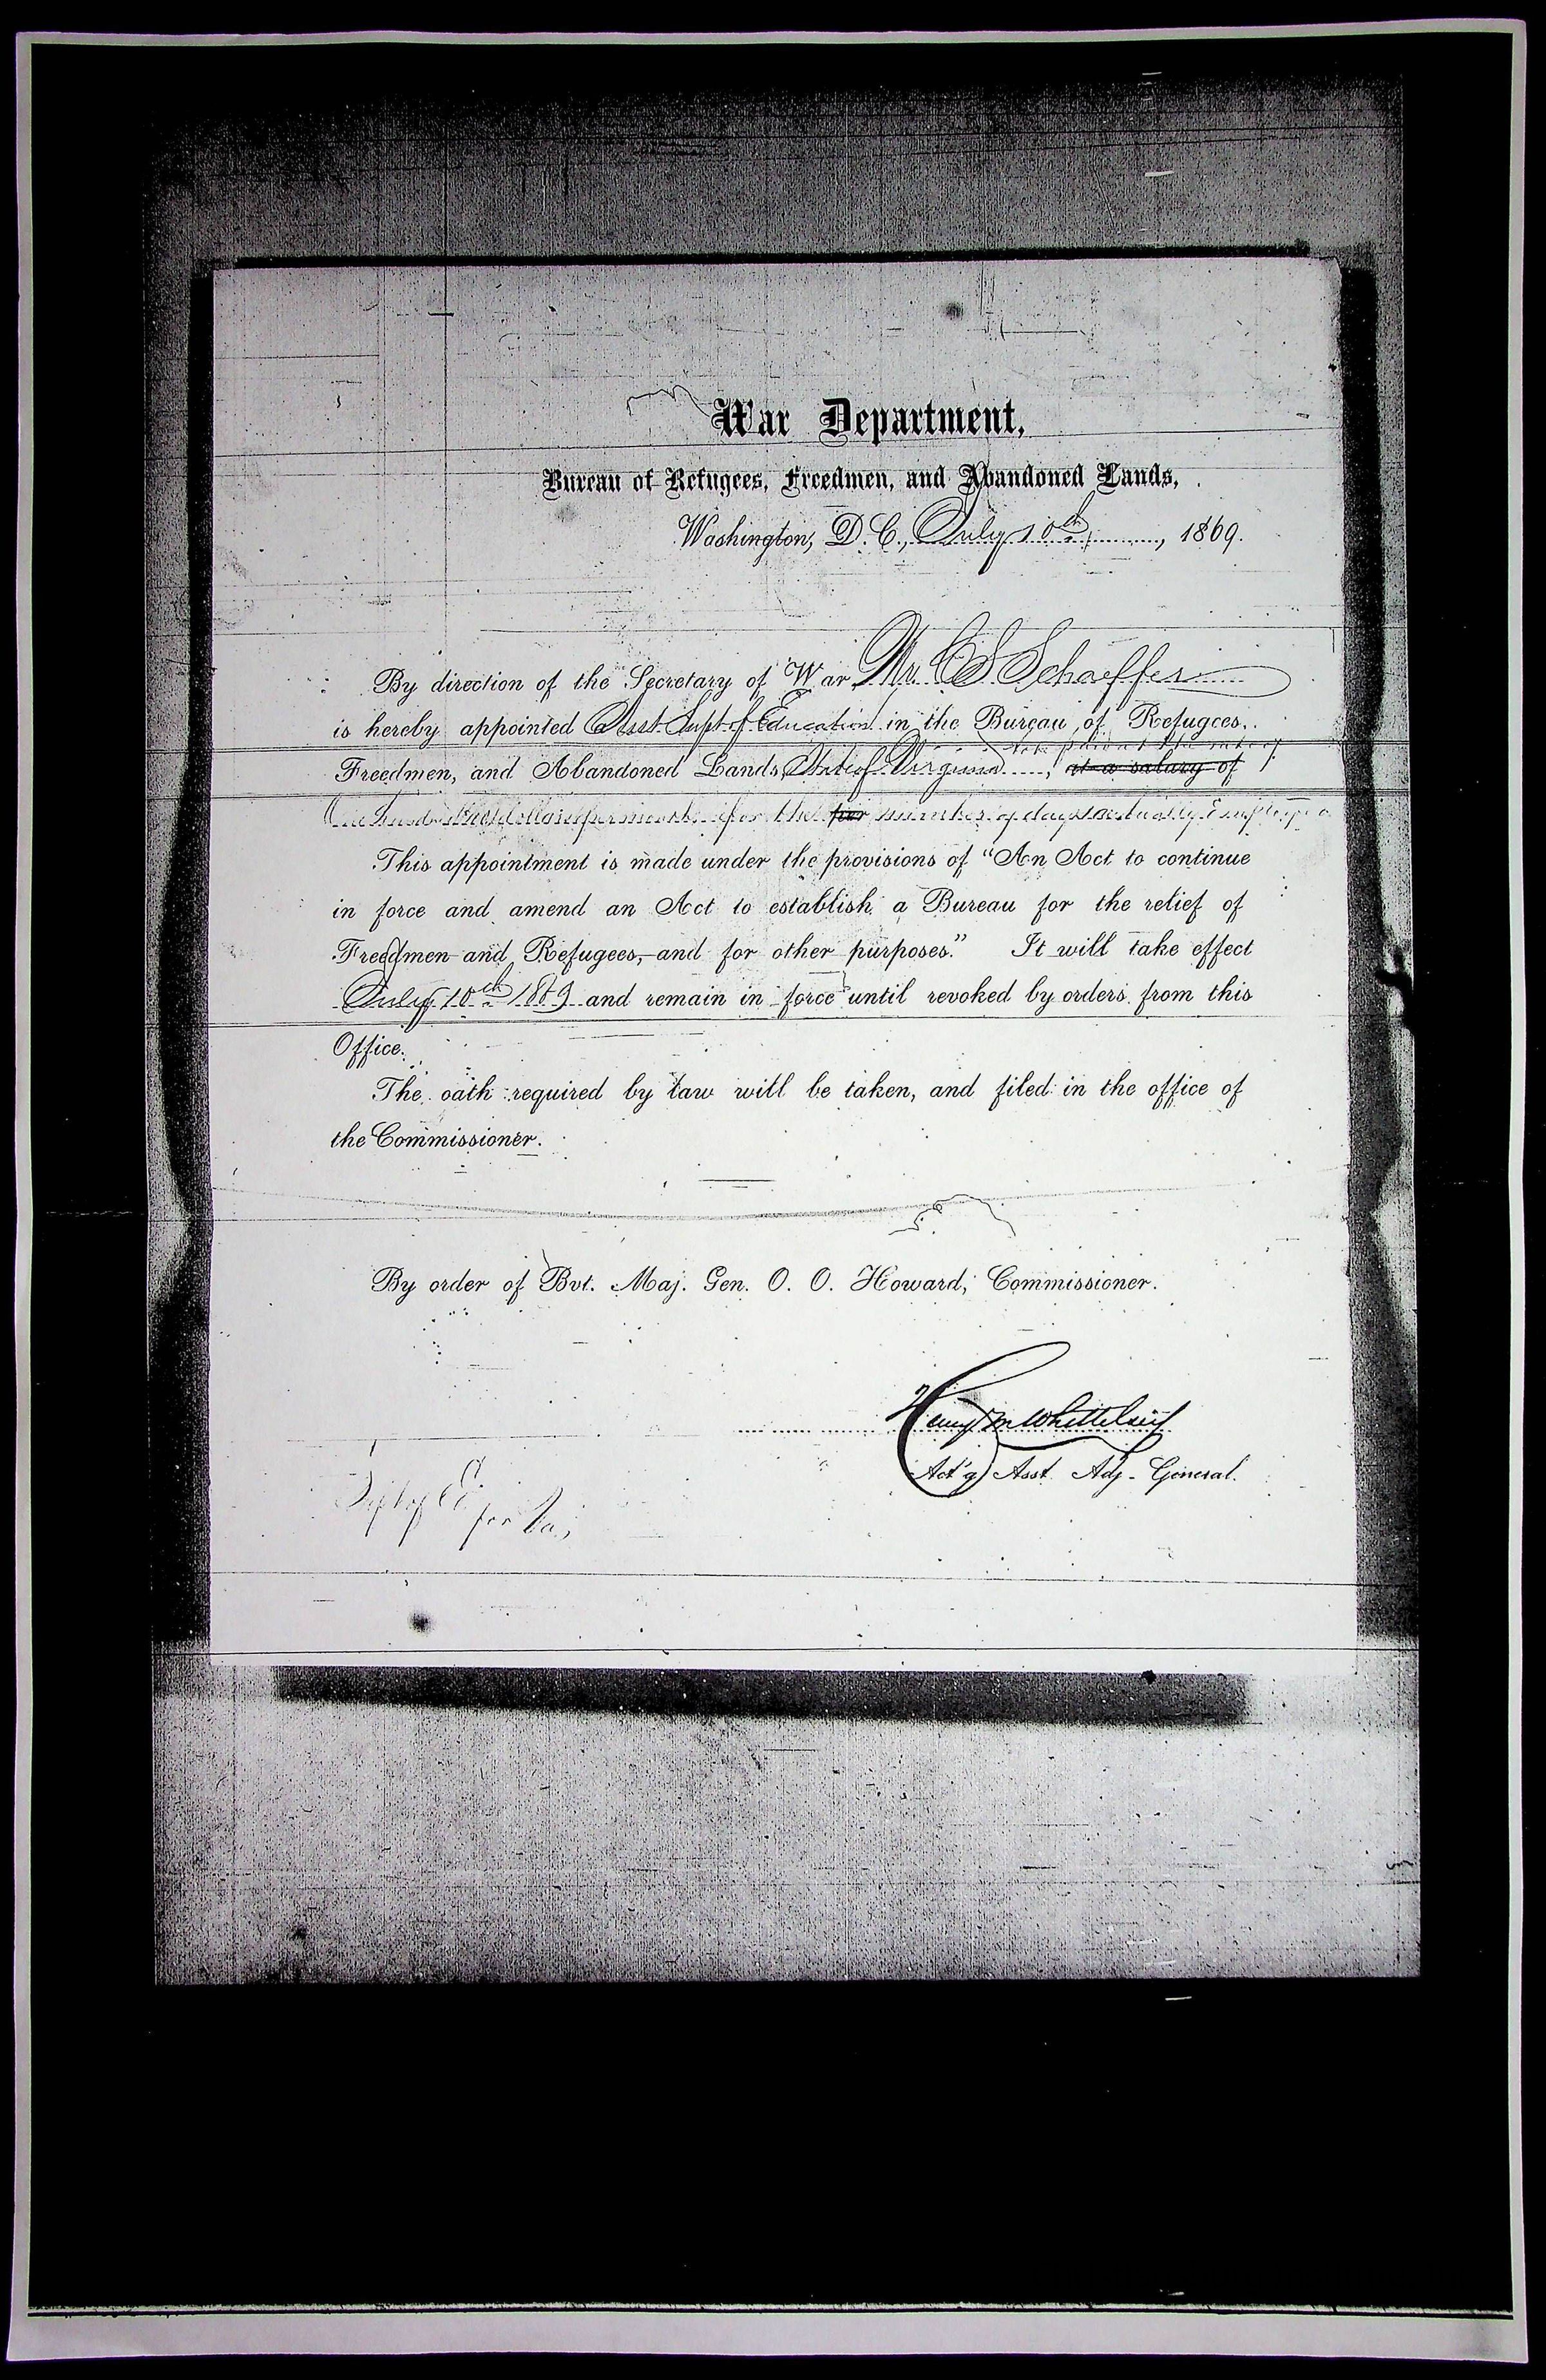 War Department,
Bureau of Refugees, Freedmen, and Abandoned Lands,
Washington, D. C., July 10th, 1869.
By direction of the Secretary of War Mr. C S Schaeffer
is hereby appointed Asst. Supt. of Education in the Bureau of Refugees,
Freedmen, and Abandoned Lands, State of Virginia, to be paid at the rate of at a salary of
One hundred dollars per month for the per number of days actually Employed
This appointment is made under the provisions of "An Act to continue
in force and amend an Act to establish a Bureau for the relief of
Freedmen and Refugees, and for other purposes." It will take effect
July 10th 1869 and remain in force until revoked by orders from this
Office.
The oath required by law will be taken, and filed in the office of
the Commissioner.
By order of Bvt. Maj. Gen. O. O. Howard, Commissioner.
Henry M Whittelsey
Act'g Asst. Adj. General.
for Va,